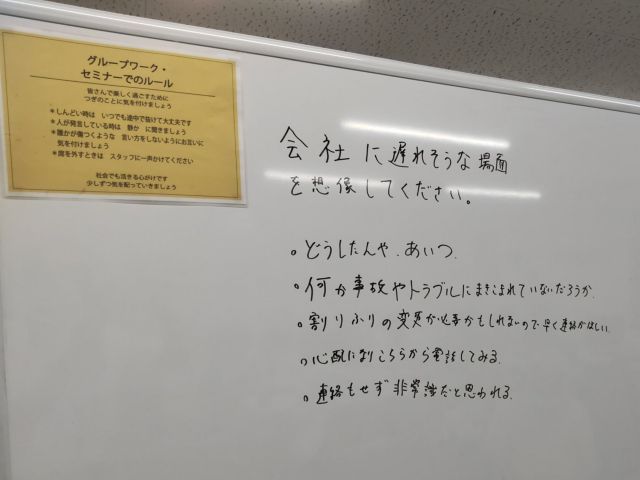 グループワーク・
セミナーでのルール
皆さんで楽しく過ごすために
つぎのことに気を付けましょう
＊しんどい時は　いつでも途中で抜けて大丈夫です
＊人が発言している時は　静か　に聞きましょう
＊誰かが傷つくような　言い方をしないようにお互いに
気を付けましょう
＊席を外すときは　スタッフに一声かけてください
社会でも活きる心がけです
少しずつ気を配っていきましょう
会社に遅れそうな場面
を想像してください。
・どうしたんや、あいつ、
・何か事故やトラブルにまきこまれていないだろうか、
・割りふりの変更が必要かもしれないので早く連絡がほしい、
・心配になりこちらから電話してみる、
・連絡もせず非常識だと思われる、